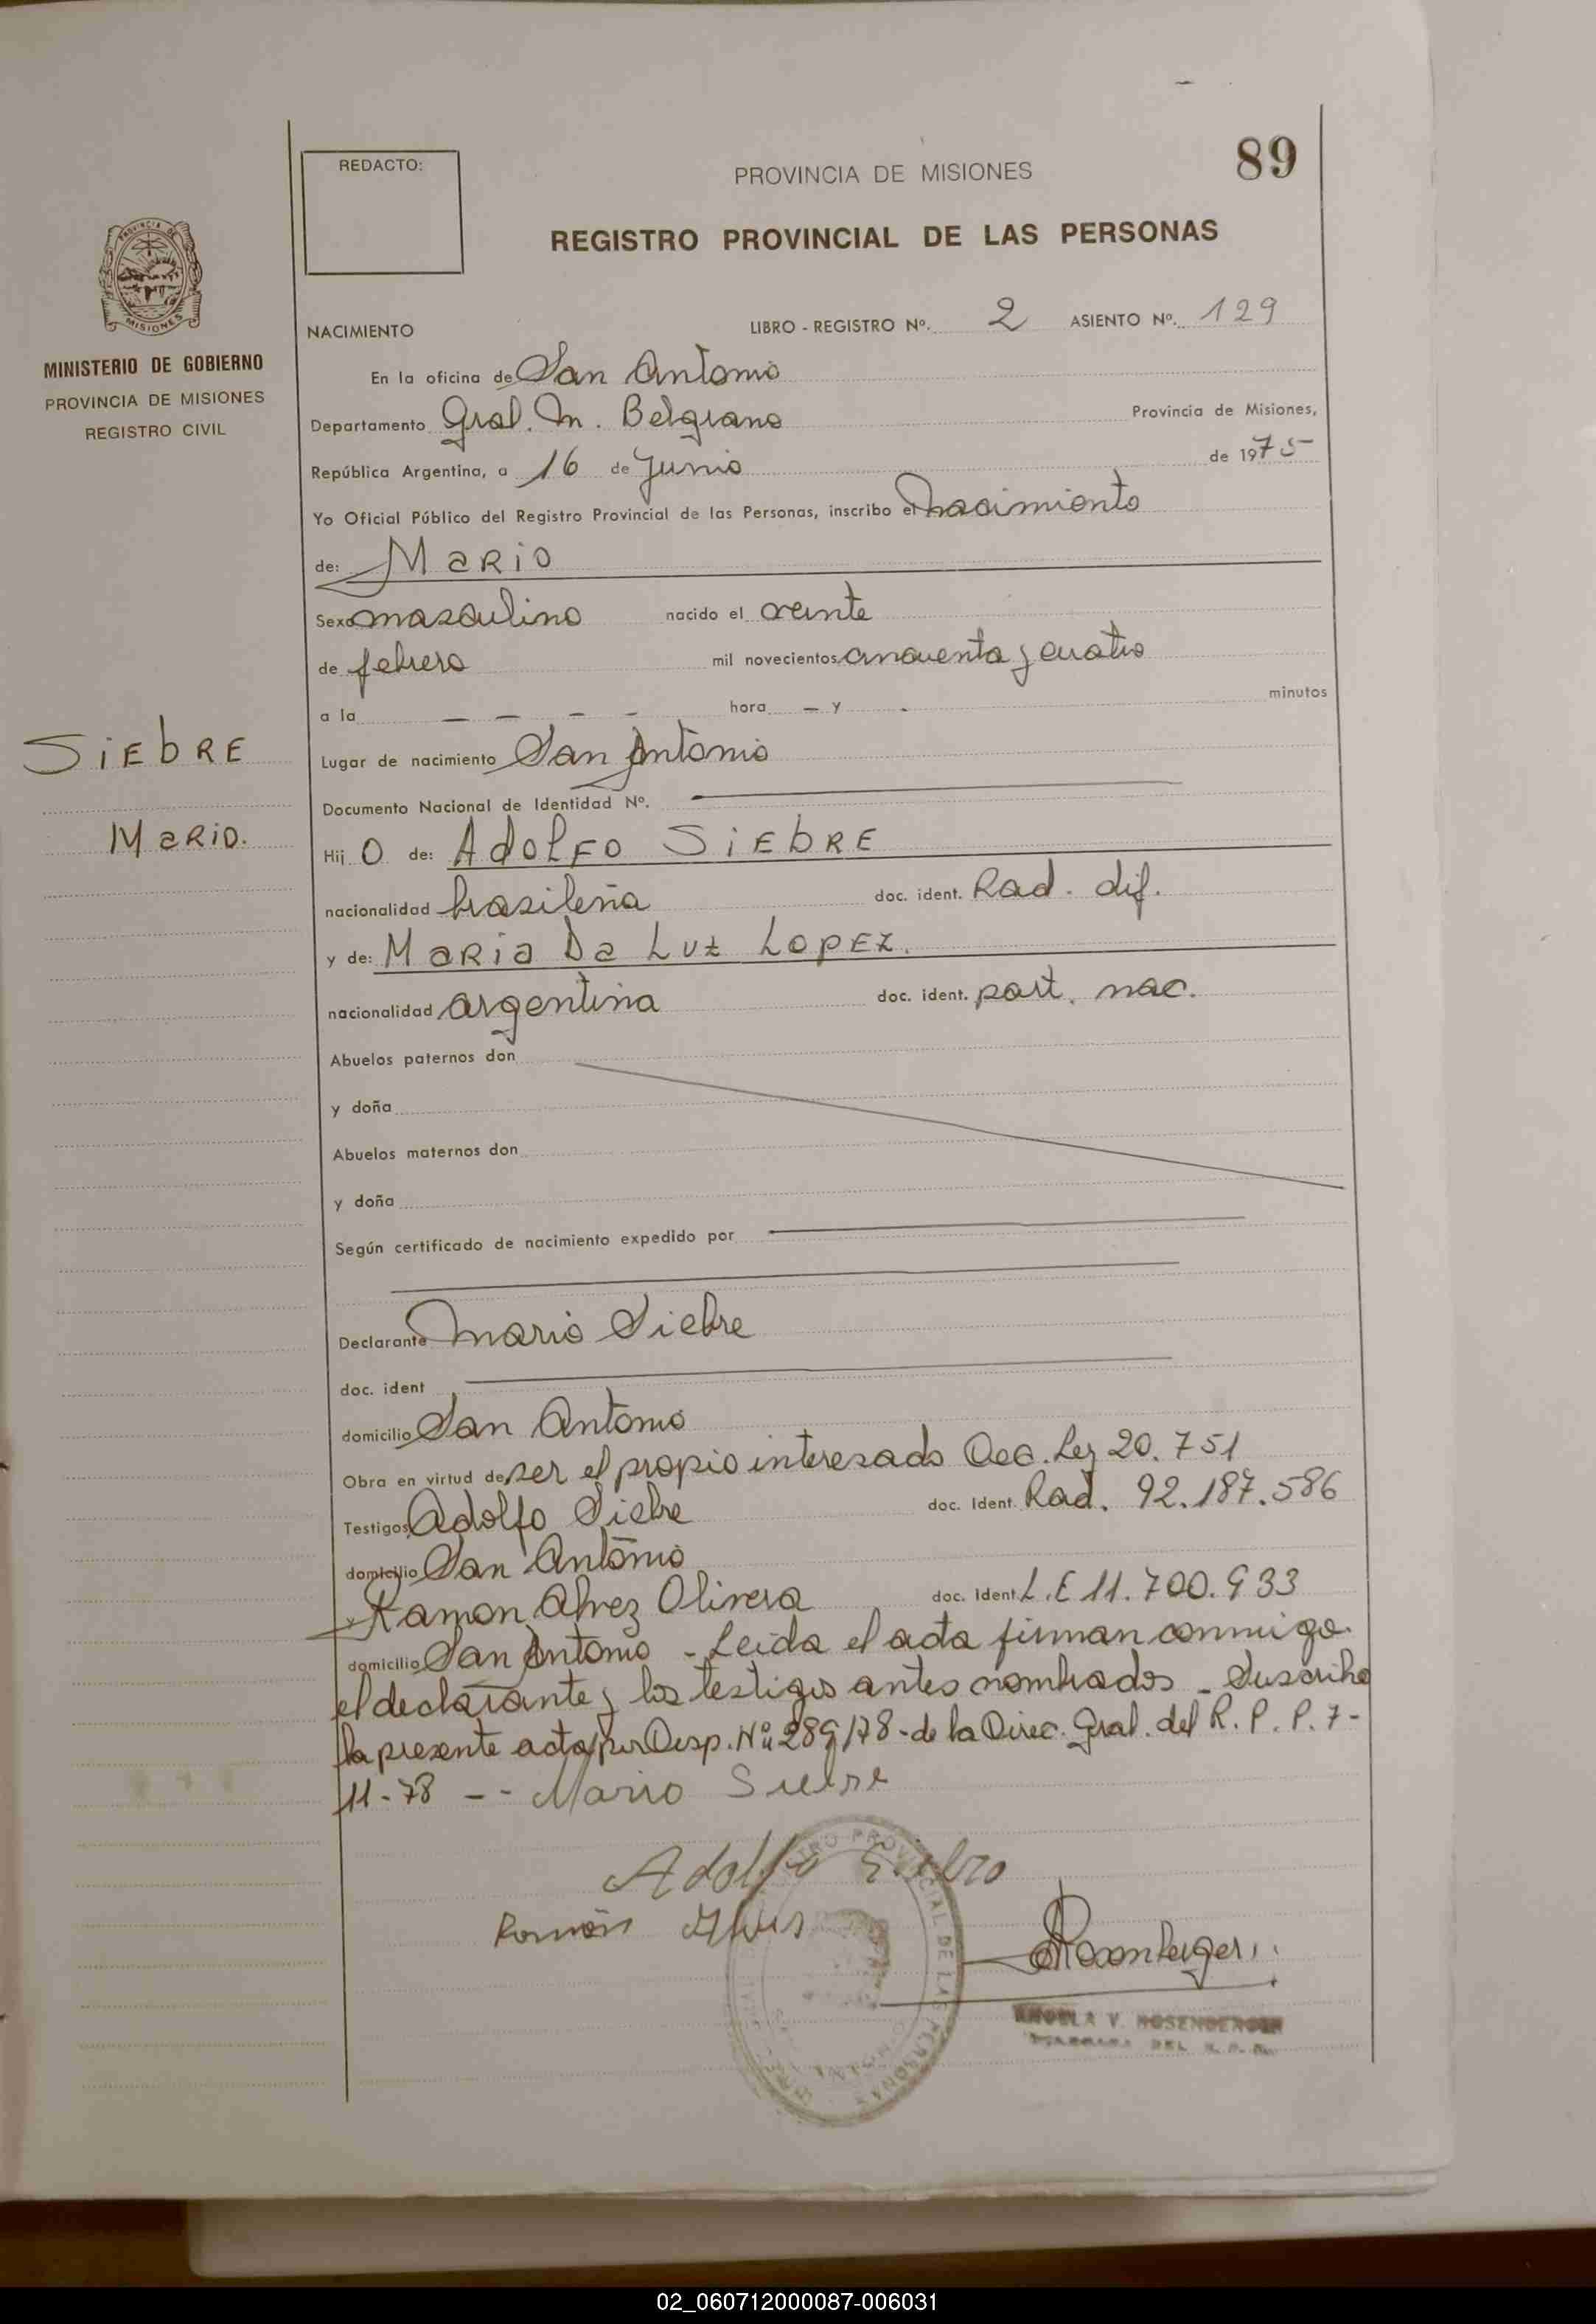 REDACTO:
PROVINCIA DE MISIONES
89
REGISTRO PROVINCIAL DE LAS PERSONAS
PROVINCIA DE
MISIONES
MINISTERIO DE GOBIERNO
PROVINCIA DE MISIONES
REGISTRO CIVIL
NACIMIENTO LIBRO - REGISTRO Nº. 2 ASIENTO Nº. 129
En la oficina de San Antonio
Departamento Gral. M. Belgrano Provincia de Misiones,
República Argentina, a 16 de Junio de 1975
Yo Oficial Público del Registro Provincial de las Personas, inscribo el nacimiento
de: MARIO
Sexo masculino nacido el veinte
de febrero mil novecientos cincuenta y cuatro
a la — — — — hora — y - minutos
SIEBRE
MARIO.
Lugar de nacimiento San Antonio
Documento Nacional de Identidad Nº.
Hij O de: ADOLFO SIEBRE
nacionalidad brasileña doc. ident. Rad. dif.
y de: MARIA DA LUZ LOPEZ.
nacionalidad argentina doc. ident. part. nac.
Abuelos paternos don
y doña
Abuelos maternos don
y doña
Según certificado de nacimiento expedido por
Declarante Mario Siebre
doc. ident
domicilio San Antonio
Obra en virtud de ser el propio interesado Dec. Ley 20.751
Testigos Adolfo Siebre doc. Ident. Rad. 92.187.586
domicilio San Antonio
y Ramon Alvez Olivera doc. Ident L.E 11.700.933
domicilio San Antonio - Leida el acta firman conmigo
el declarante y los testigos antes nombrados - Suscribo
la presente acta por Desp. Nº 289/78 - de la Direc. Gral. del R. P. P. 7-
11-78 -- Mario Siebre
Adolfo Siebro
Ramón Alves
Rosenberger
ANGELA V. ROSENBERGER
DEL R. P. P.
02_060712000087-006031